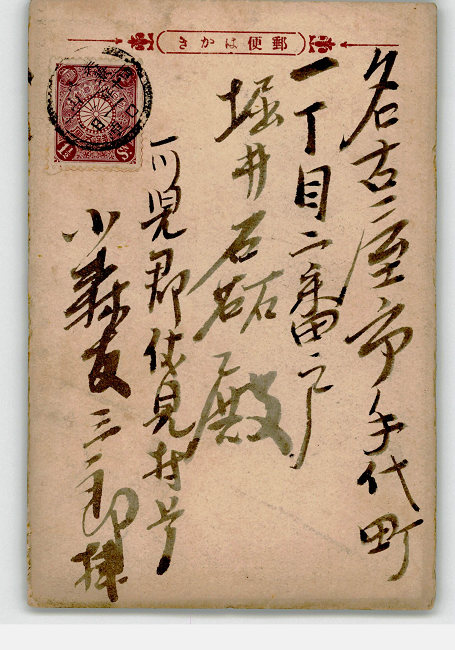 郵便はかき
名古屋市 代町
一丁目二番戸
堀井石 殿
可児郡伏見村
小森友三郎拝
1½ Sn.